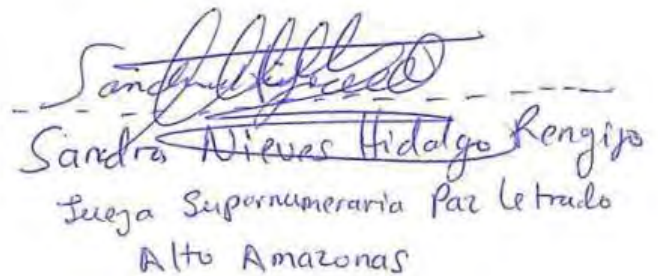 Sandra Nieves Hidalgo Rengijo
Jueza Supernumeraria Paz Letrado
Alto Amazonas